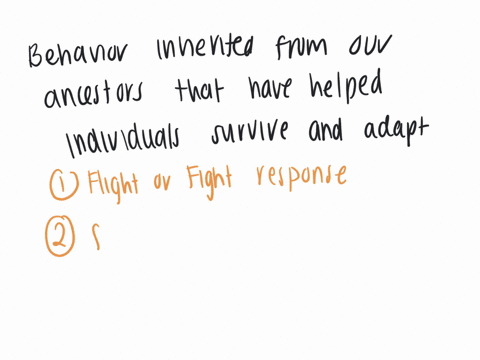 Behavior inherited from our
ancestors that have helped
individuals survive and adapt
① Flight or Fight response
②